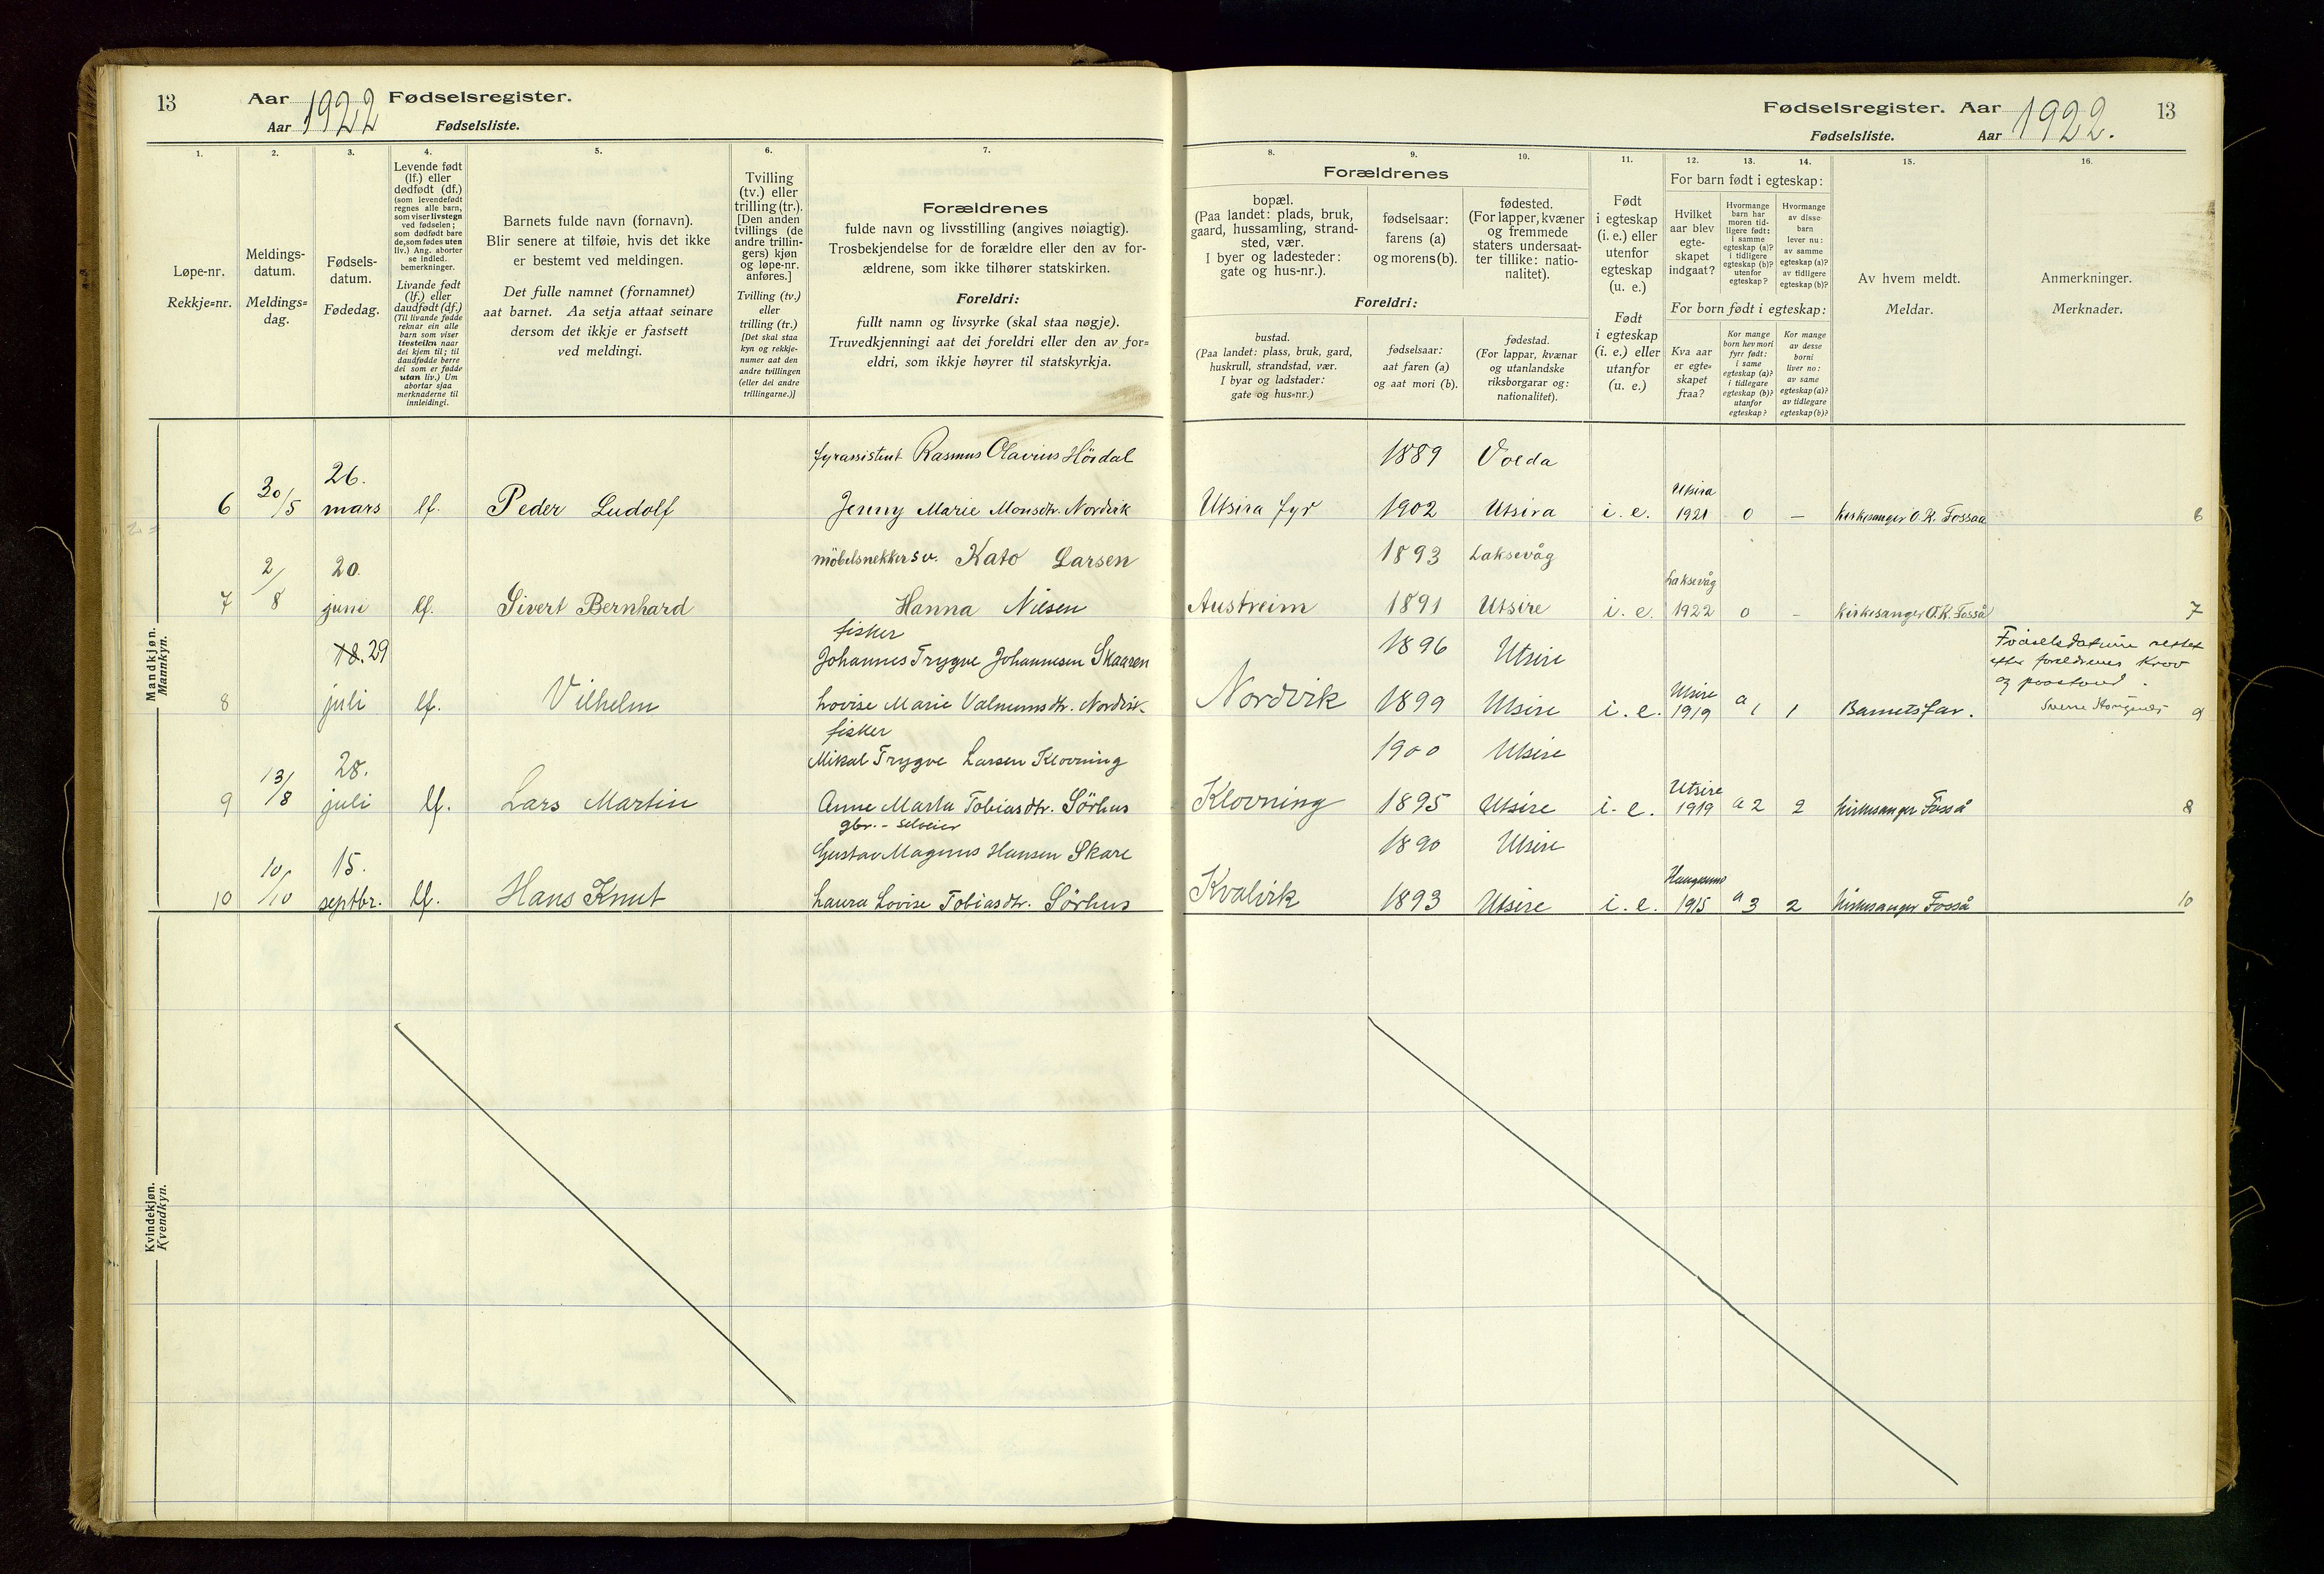 13
Aar 1922 Fødselsregister.
Aar Fødselsliste.
Fødselsregister. Aar 1922. 13
Fødselsliste. Aar
1.
Løpe-nr.
Rekkje=nr.
2.
Meldings-
datum.
Meldings=
dag.
3.
Fødsels-
datum.
Fødedag.
4.
Levende født
(lf.) eller
dødfødt (df.)
(som levendefødt
regnes alle barn,
som viser livstegn
ved fødselen;
som dødfødt bare
de, som fødes uten
liv.) Ang. aborter
se indled.
bemerkninger.
Livande født
(lf.) eller
daudfødt (df.)
(Til livande fødde
reknar ein alle
barn som viser
livsteikn naar
dei kjem til; til
daudfødde berre
dei som er fødde
utan liv.) Um
abortar sjaa
merknaderne til
innleidingi.
5.
Barnets fulde navn (fornavn).
Blir senere at tilføie, hvis det ikke
er bestemt ved meldingen.
Det fulle namnet (fornamnet)
aat barnet. Aa setja attaat seinare
dersom det ikkje er fastsett
ved meldingi.
6.
Tvilling
(tv.) eller
trilling (tr.).
[Den anden
tvillings (de
andre trillin-
gers) kjøn
og løpe-nr.
anføres.]
Tvilling (tv.)
eller
trilling (tr.)
[Det skal staa
kyn og rekkje-
numer aat den
andre tvillingen
(eller dei andre
trillingarne.)]
7.
Forældrenes
fulde navn og livsstilling (angives nøiagtig).
Trosbekjendelse for de forældre eller den av for-
ældrene, som ikke tilhører statskirken.
Foreldri:
fullt namn og livsyrke (skal staa nøgje).
Truvedkjenningi aat dei foreldri eller den av for=
eldri, som ikkje høyrer til statskyrkja.
Forældrenes
8.
bopæl.
(Paa landet: plads, bruk,
gaard, hussamling, strand-
sted, vær.
I byer og ladesteder:
gate og hus-nr.).
9.
fødselsaar:
farens (a)
og morens (b).
10.
fødested.
(For lapper, kvæner
og fremmede
staters undersaat-
ter tillike: natio-
nalitet).
Foreldri:
bustad.
(Paa landet: plass, bruk, gard,
huskrull, strandstad, vær.
I byar og ladstader:
gate og hus=nr.)
fødselsaar:
aat faren (a)
og aat mori (b).
fødestad.
(For lappar, kvænar
og utanlandske
riksborgarar og:
nationalitet).
11.
Født
i egteskap
(i. e.) eller
utenfor
egteskap
(u. e.)
Født
i egteskap
(i. e.) eller
utanfor
(u. e.)
For barn født i egteskap:
12.
Hvilket
aar blev
egte-
skapet
indgaat?
13.
Hvormange
barn har
moren tid-
ligere født:
i samme
egteskap (a)?
i tidligere
egteskap (b)?
utenfor
egteskap?
14.
Hvormange
av disse
barn
lever nu:
av samme
egteskap (a)?
av tidligere
egteskap (b)?
For barn født i egteskap:
Kva aar
er egte=
skapet
fraa?
Kor mange
born hev mori
fyrr født:
i same
egteskap (a)?
i tidlegare
egteskap (b)?
utanfor
egteskap?
Kor mange
av desse
borni
liver no:
av same
egteskap (a)?
av tidlegare
egteskap (b)?
15.
Av hvem meldt.
Meldar.
16.
Anmerkninger.
Merknader.
Mandkjøn.
Mannkyn.
fyrassistent Rasmus Olavius Hördal 1889 Volda
6 30/5 26. mars lf. Peder Ludolf Jenny Marie Monsdtr. Nordvik Utsira fyr 1902 Utsira i. e. Utsira 1921 0 – Kirkesanger O. K. Fossaa 6
möbelsnekkersv. Kato Larsen 1893 Laksevåg
7 2/8 20. juni lf. Sivert Bernhard Hanna Nilsen Austreim 1891 Utsire i. e. Laksevåg 1922 0 – Kirkesanger O. K. Fosså 7
fisker
Johannes Trygve Johannesen Skaaren 1896 Utsire
8 18. 29 juli lf. Vilhelm Lovise Marie Valnumsdtr. Nordvik Nordvik 1899 Utsire i. e. Utsire 1919 a 1 1 Barnets far. 9
Fødselsdatum rettet
efter foreldrenes krav
og paastand.
Sverre
fisker
Mikal Trygve Larsen Klovning 1900 Utsire
9 13/8 28. juli lf. Lars Martin Anne Marta Tobiasdtr. Sörhus Klovning 1895 Utsire i. e. Utsire 1919 a 2 2 Kirkesanger Fosså 8
gbr. - selveier
Gustav Magnus Hansen Skare 1890 Utsire
10 10/10 15. septbr. lf. Hans Knut Laura Lovise Tobiasdtr. Sörhus Kvalvik 1893 Utsire i. e. Haugesund 1915 a 3 2 Kirkesanger Fosså 10
Kvindekjøn.
Kvendkyn.